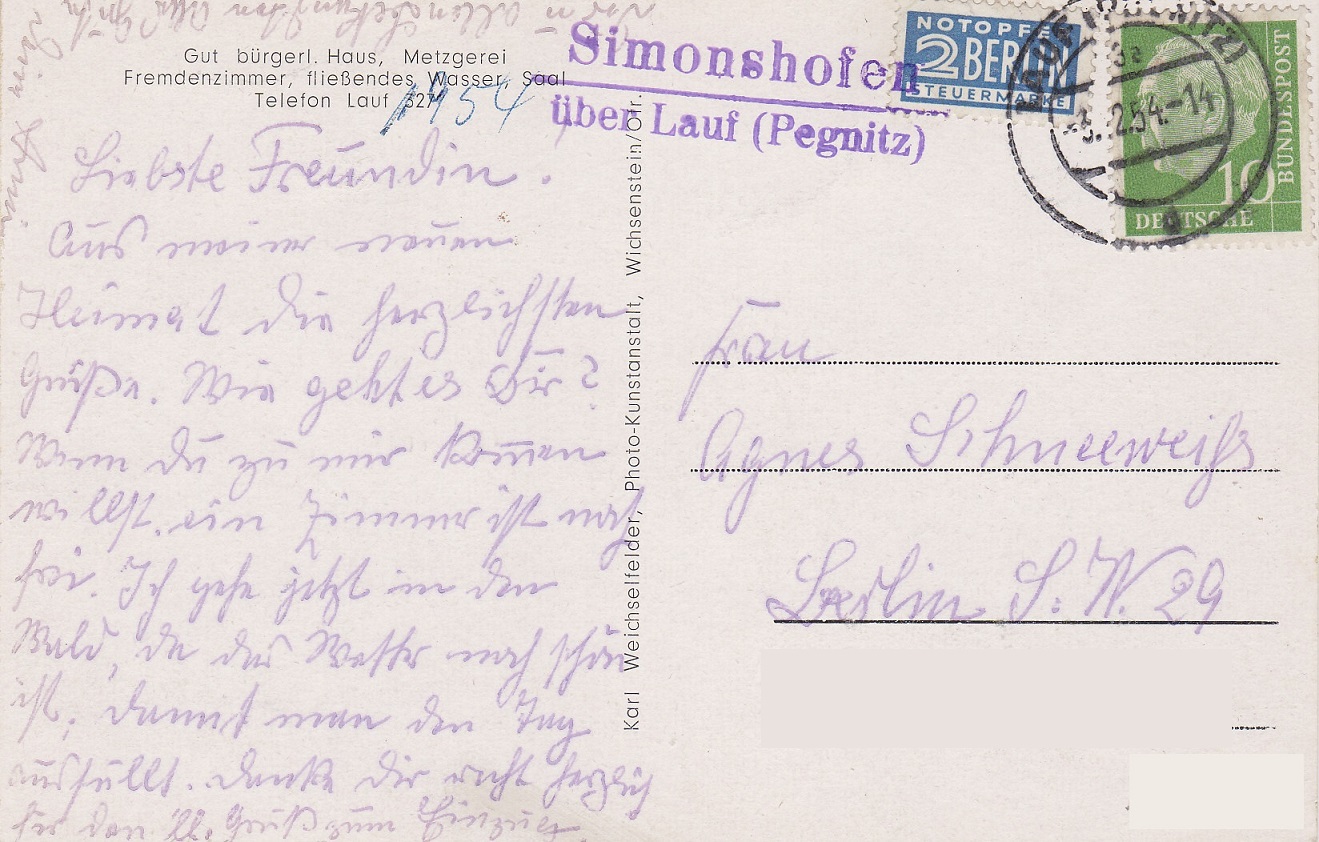 Gut bürgerl. Haus, Metzgerei
Fremdenzimmer, fließendes Wasser, Saal
Telefon Lauf 327
1954
Simonshofen
über Lauf (Pegnitz)
NOTOPFER
2 BERLIN
STEUERMARKE
LAUF (PEGNITZ)
2.54.-14
DEUTSCHE
BUNDESPOST
10
Liebste Freundin.
Aus meiner neuen
Heimat die herzlichsten
Grüße. Wie geht es Dir?
Wenn du zu mir kommen
willst. ein Zimmer ist noch
frei. Ich gehe jetzt in den
Wald, da das Wetter noch schön
ist, damit man den Tag
ausfüllt. Danke dir recht herzlich
für den lb. Gruß zum Einzug
Karl Weichselfelder, Photo-Kunstanstalt, Wichsenstein/Ofr.
Frau
Agnes Schneeweiss
Berlin S.W. 29